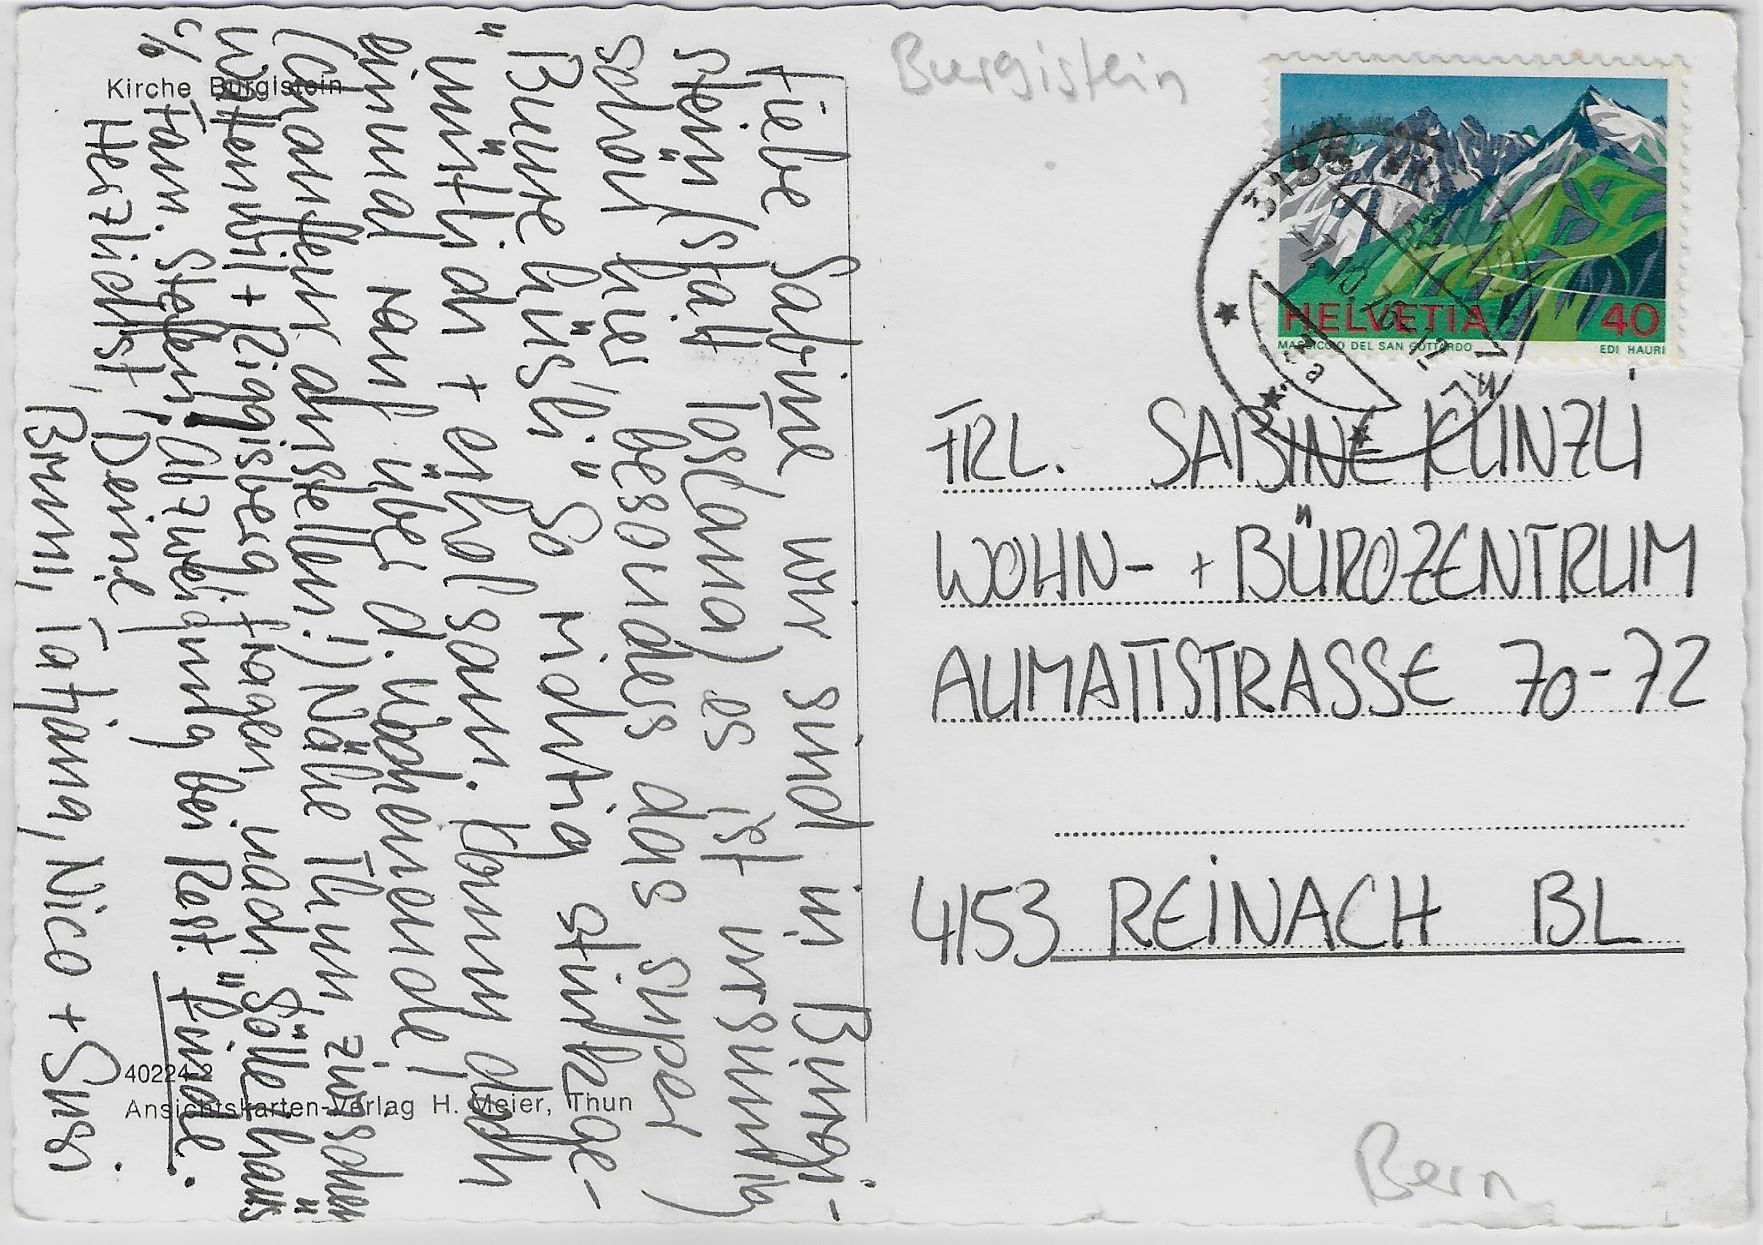 Kirche Burgistein
Liebe Sabine wir sind in Burgi-
stein (statt Toscana) es ist irrsinnig
schön hier, besonders das super
"Beurehüsli" So richtig stinkge-
mütlich + erholsam. Komm doch
einmal rauf über d. Wochenende!
(Chauffeur anstellen!) Nähe Thun, zwischen
Wattenwil + Riggisberg fragen nach "Söllehaus"
c/o Fam. Steffen! Abzweigung bei Rest. "Linde".
Herzlichst, Deine
Bruni, Tatjana, Nico + Susi
40224-2
Ansichtskarten-Verlag H. Meier, Thun
Burgistein
HELVETIA 40
MASSICCIO DEL SAN GOTTARDO EDI HAURI
FRL. SABINE KUNZLI
WOHN- + BÜROZENTRUM
AUMATTSTRASSE 70-72
4153 REINACH BL
Bern